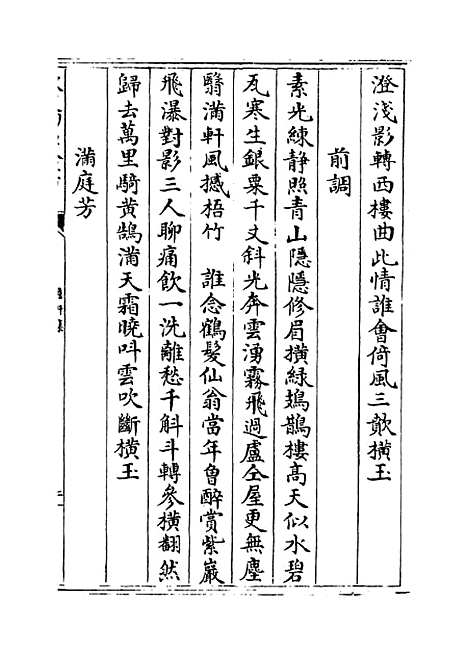 澄淺影轉西樓曲此情誰會倚風三歎橫玉
前調
素光練靜照青山隱隱修眉横緑鳷鵲樓高天似水碧
瓦寒生銀粟千丈斜光奔雲湧霧飛過盧仝屋更無塵
翳滿軒風撼梧竹　誰念鶴髮仙翁當年曽醉賞紫巖
飛瀑對影三人聊痛飲一洗離愁千斛斗轉參横翻然
歸去萬里騎黄鵠滿天霜曉呌雲吹斷横玉
滿庭芳